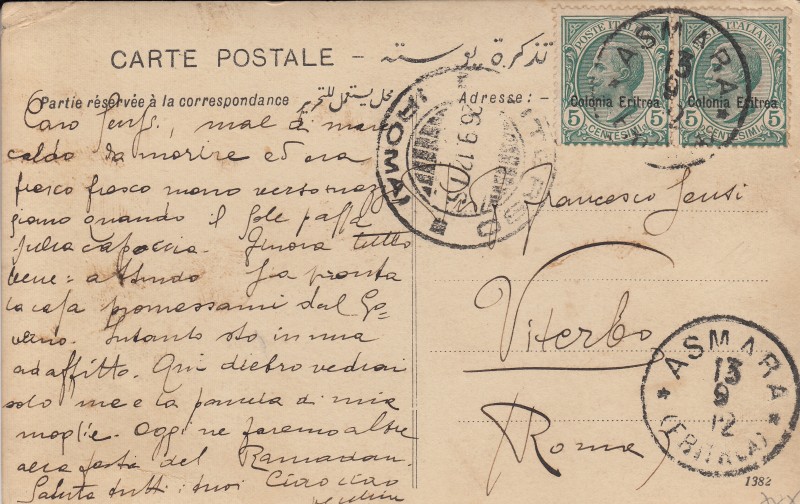 POSTE ITALIANE
Colonia Eritrea
5 CENTESIMI 5
POSTE ITALIANE
Colonia Eritrea
5 CENTESIMI 5
ASMARA
CARTE POSTALE – تذكرة بوسته
Partie réservée à la correspondance محل يستعمل للتحرير
Adresse: –
VITERBO
(ROMA)
26.9.12
Caro
caldo da morire ed ora
fresco fresco mano
giorno quando il sole passa
sulla capoccia. Finora tutto
bene: attendo sia pronta
la casa promessami dal Go-
verno. Intanto sto in una
ad affitto. Qui dietro vedrai
solo me e la pancia di mia
moglie. Oggi ne faremo altre
alla festa del Ramadan.
Saluta tutti i tuoi Ciao ciao
Francesco
Viterbo
Roma
ASMARA
13
9
12
(ERITREA)
1382